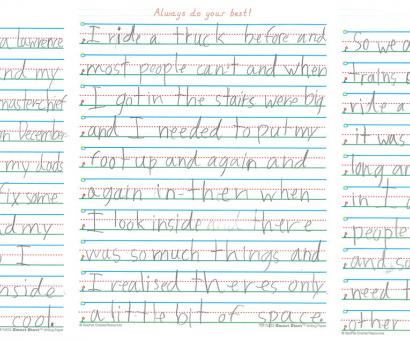 a lawrence
nd my
masterchief
in December
my dads
fix some
nd my
I
nside
cool.
Always do your best!
I ride a truck before and
most people can't and when
I got in the stairs were big
and I needed to put my
foot up and again and
again in-then when
I look inside and there
was so much things and
I realised theres only
a little bit of space.
© Teacher Created Resources
Smart Start™ Writing Paper
So we
trains
ride a
it was
long an
in I
people
and so
need t
other